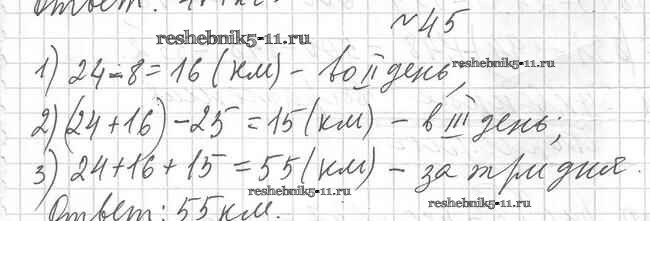 №45
reshebnik5-11.ru
1) 24-8=16 (км) – во II день,
reshebnik5-11.ru
2) (24+16) -25 =15 (км) – в III день;
3) 24+16+15=55 (км) – за три дня.
reshebnik5-11.ru
Ответ: 55 км.
reshebnik5-11.ru